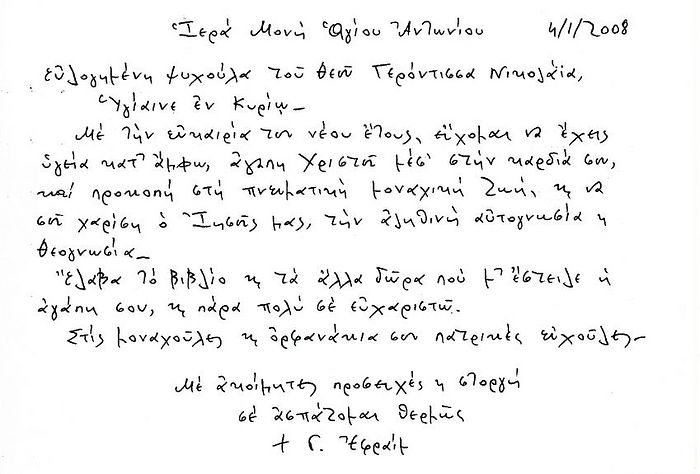 Ἱερά Μονή Ἁγίου Ἀντωνίου 4/1/2008
εὐλογημένη ψυχούλα τοῦ Θεοῦ Γερόντισσα Νικολαΐα,
Ὑγίαινε ἐν Κυρίῳ –
Μέ τήν εὐκαιρία του νέου ἔτους, εὔχομαι νά ἔχεις
ὑγεία κατ' ἄμφω, ἀγάπη Χριστοῦ μέσ' στήν καρδιά σου,
καί προκοπή στή πνευματική μοναχική ζωή, κ νά
σοῦ χαρίση ὁ Ἰησοῦς μας, τήν ἀληθινή αὐτογνωσία κ
Θεογνωσία –
Ἔλαβα τό βιβλίο κ τά ἄλλα δῶρα πού μ' ἔστειλε ἡ
ἀγάπη σου, κ πάρα πολύ σέ εὐχαριστῶ.
Στίς μοναχοῦλες κ ὀρφανάκια σου πατρικές εὐχοῦλες –
Μέ ἀκοίμητες προσευχές κ στοργή
σέ ἀσπάζομαι θερμῶς
+ Γ. Ἐφραίμ